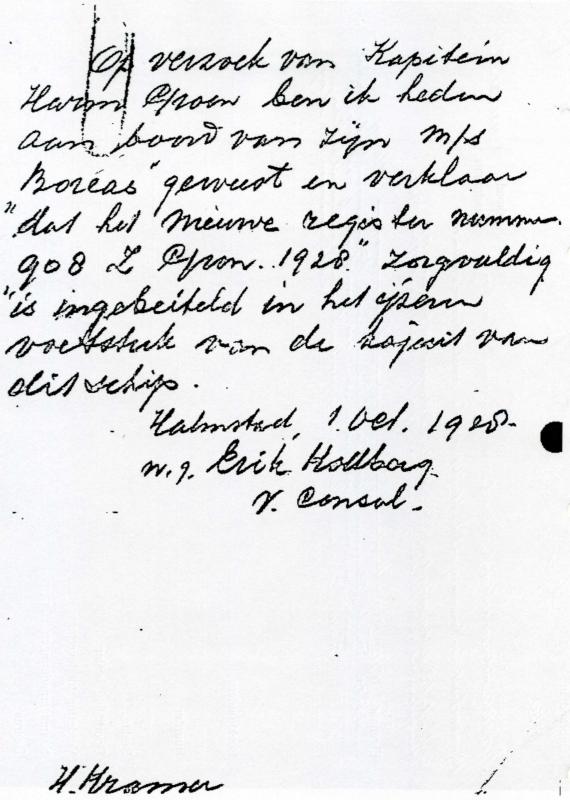 Op verzoek van Kapitein
Harm ben ik heden
aan boord van zijn m/s
"Boreas" geweest en verklaar
"dat het nieuwe register nummer
908 Z Gron. 1928." zorgvuldig
"is ingebeiteld in het ijzeren
voetstuk van de kajuit van
dit schip.
Halmstad, 1 Oct. 1928.
w.g. Erik Hollborg
V. Consul.
H. Kramer